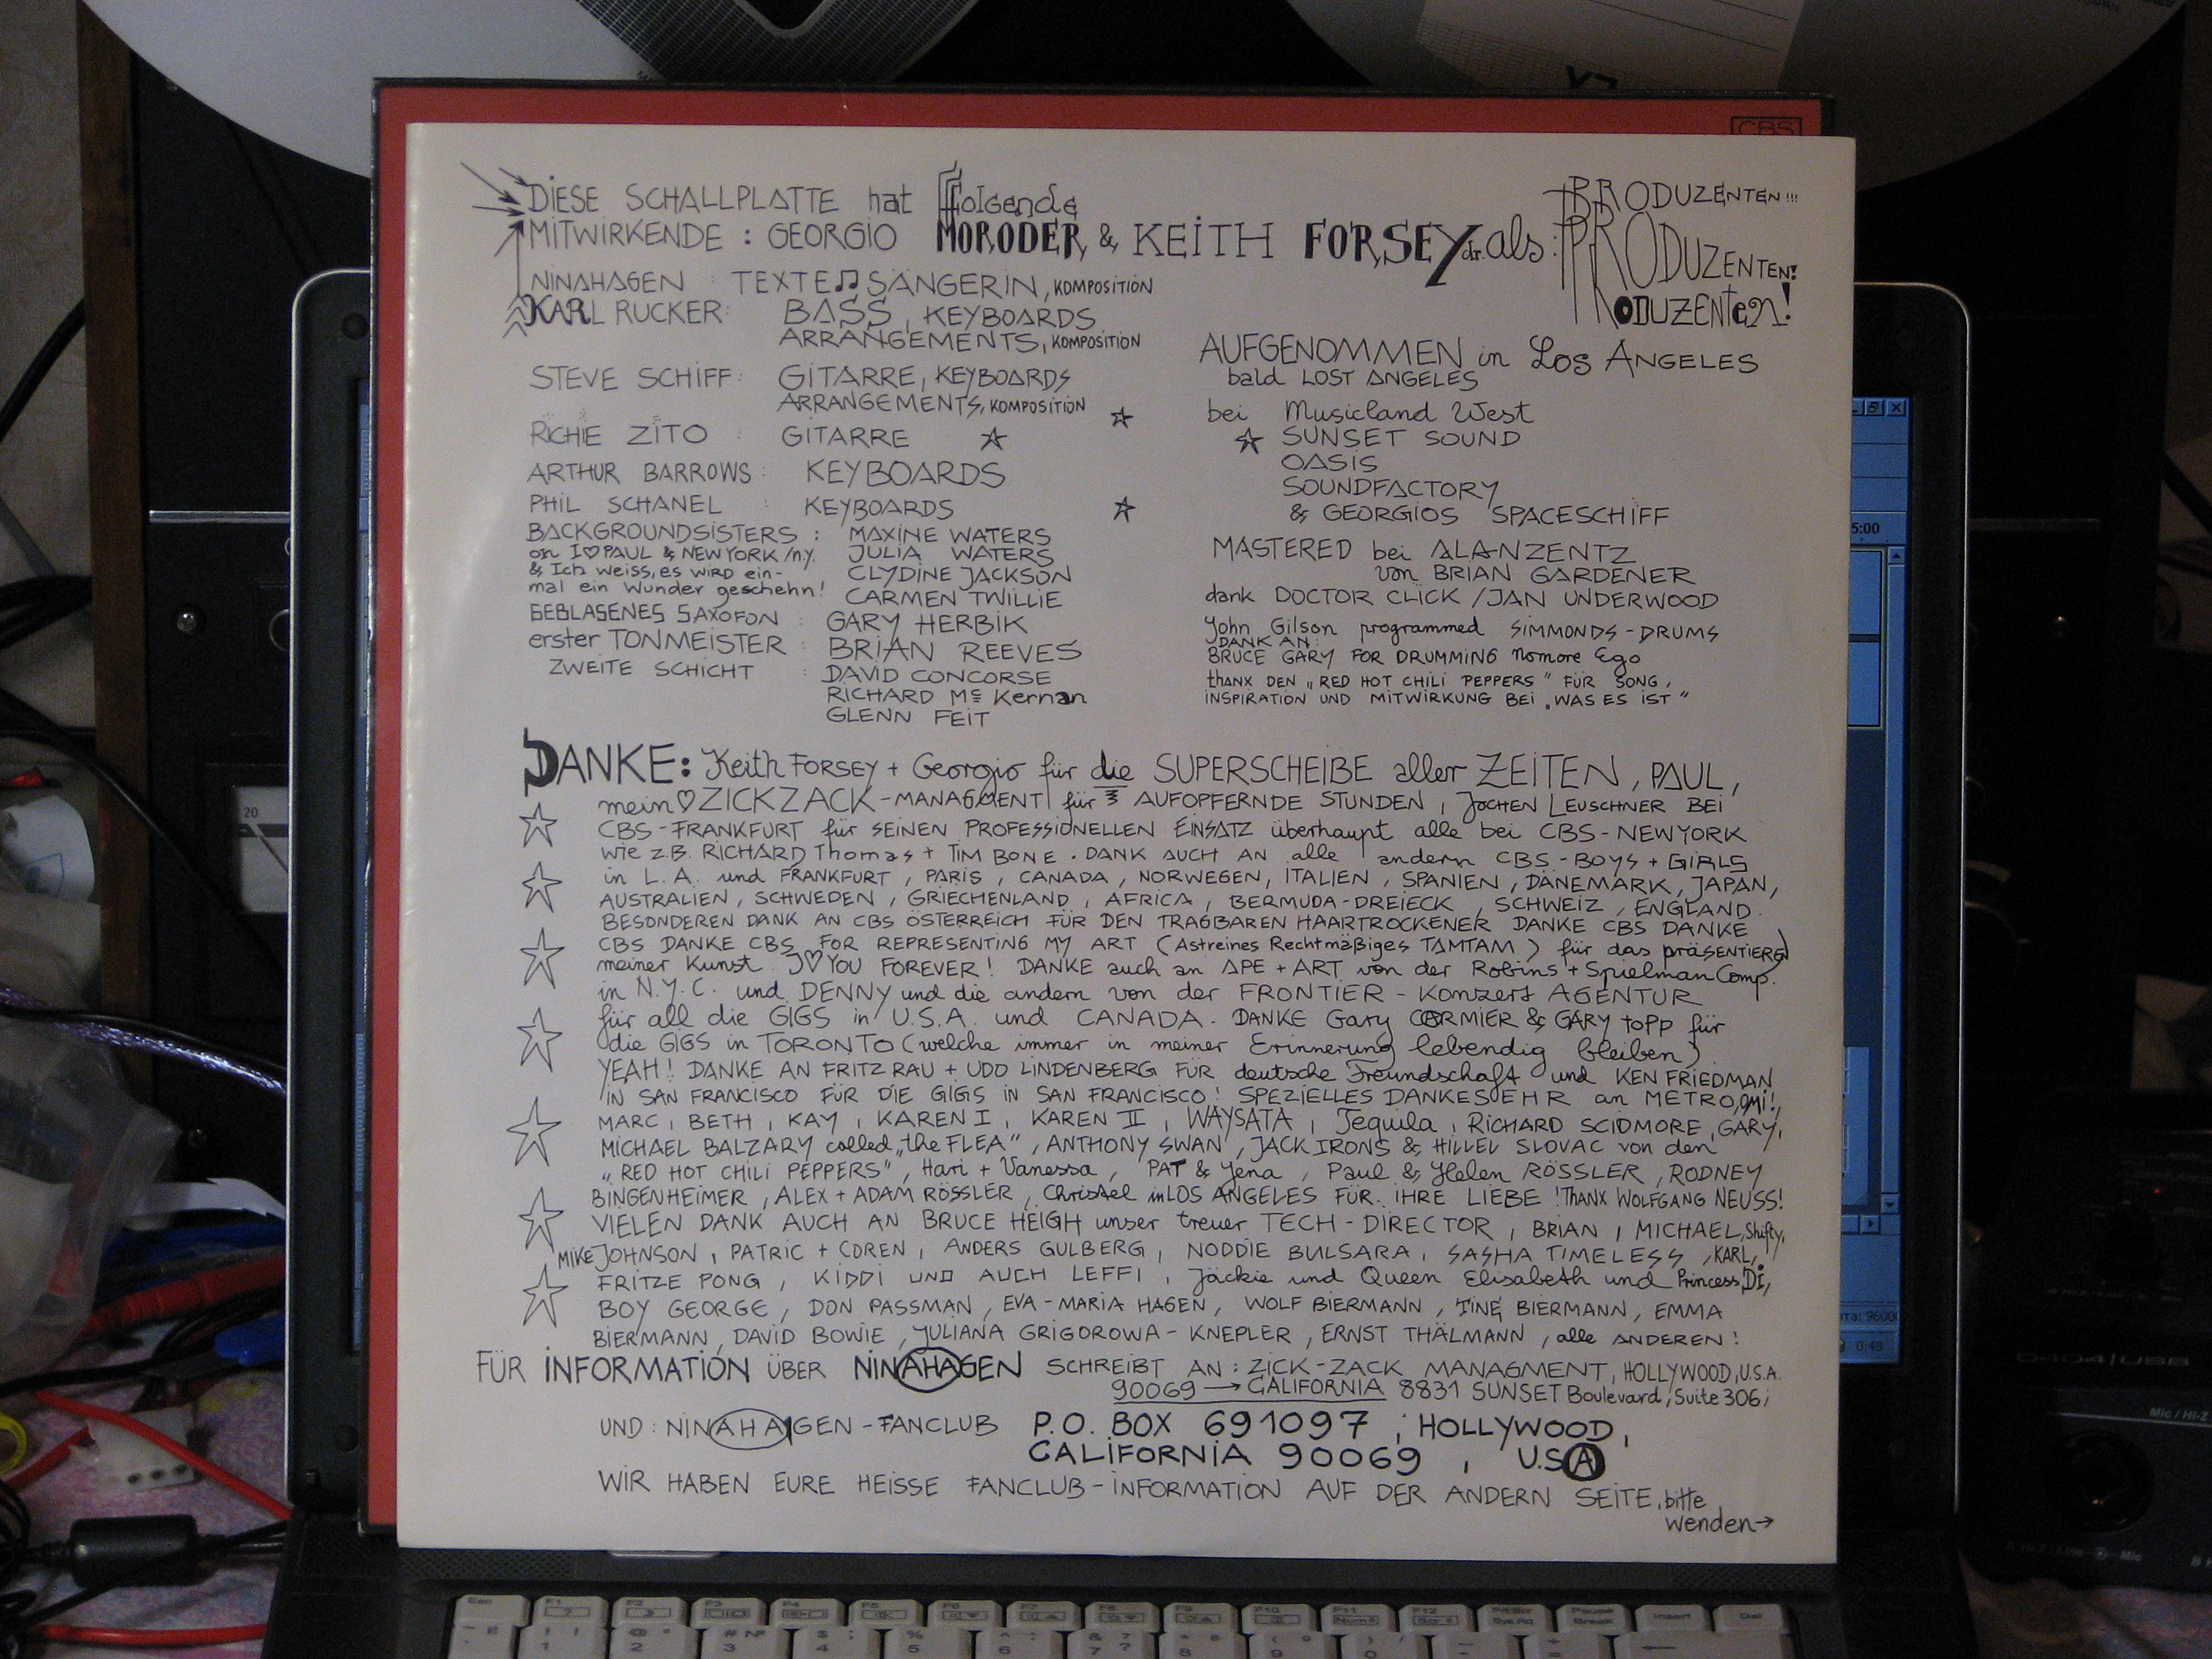 CBS
DIESE SCHALLPLATTE hat folgende
MITWIRKENDE : GEORGIO MORODER & KEITH FORSEY dr. als :
PRODUZENTEN!!!
PRODUZENTEN!
PRODUZENTEN!
NINAHAGEN : TEXTE♫SÄNGERIN, KOMPOSITION
KARL RUCKER: BASS, KEYBOARDS
ARRANGEMENTS, KOMPOSITION
STEVE SCHIFF: GITARRE, KEYBOARDS
ARRANGEMENTS, KOMPOSITION
RICHIE ZITO : GITARRE ☆
ARTHUR BARROWS: KEYBOARDS
PHIL SCHANEL : KEYBOARDS
BACKGROUNDSISTERS : MAXINE WATERS
on I♡PAUL & NEWYORK/n.y. JULIA WATERS
& Ich weiss, es wird ein- CLYDINE JACKSON
mal ein Wunder geschehn! CARMEN TWILLIE
GEBLASENES SAXOFON : GARY HERBIK
erster TONMEISTER : BRIAN REEVES
ZWEITE SCHICHT : DAVID CONCORSE
RICHARD Mc Kernan
GLENN FEIT
AUFGENOMMEN in Los ANGELES
bald LOST ANGELES
bei Musicland West
☆ SUNSET SOUND
OASIS
SOUNDFACTORY
& GEORGIOS SPACESCHIFF
MASTERED bei ALANZENTZ
von BRIAN GARDENER
dank DOCTOR CLICK / JAN UNDERWOOD
John Gilson programmed SIMMONDS-DRUMS
DANK AN:
BRUCE GARY FOR DRUMMING Nomore Ego
thanx den „RED HOT CHILI PEPPERS" FÜR SONG,
INSPIRATION UND MITWIRKUNG BEI „WAS ES IST"
DANKE: Keith FORSEY + Georgio für die SUPERSCHEIBE aller ZEITEN, PAUL,
mein♡ZICKZACK-MANAGMENT für AUFOPFERNDE STUNDEN, JOCHEN LEUSCHNER BEI
CBS-FRANKFURT für SEINEN PROFESSIONELLEN EINSATZ überhaupt alle bei CBS-NEWYORK
wie z.B. RICHARD Thomas + TIM BONE. DANK AUCH AN alle andern CBS-BOYS + GIRLS
in L.A. und FRANKFURT, PARIS, CANADA, NORWEGEN, ITALIEN, SPANIEN, DÄNEMARK, JAPAN,
AUSTRALIEN, SCHWEDEN, GRIECHENLAND, AFRICA, BERMUDA-DREIECK, SCHWEIZ, ENGLAND.
BESONDEREN DANK AN CBS ÖSTERREICH FÜR DEN TRAGBAREN HAARTROCKENER DANKE CBS DANKE
CBS DANKE CBS FOR REPRESENTING MY ART (Astreines Rechtmäßiges TAMTAM) für das präsentieren
meiner Kunst. I♡YOU FOREVER! DANKE auch an APE + ART von der Robins + Spielman Comp.
in N.Y.C. und DENNY und die andern von der FRONTIER - Konzert AGENTUR
für all die GIGS in U.S.A. und CANADA. DANKE Gary CORMIER & GARY TOPP für
die GIGS in TORONTO (welche immer in meiner Erinnerung lebendig bleiben)
YEAH! DANKE AN FRITZ RAU + UDO LINDENBERG FÜR deutsche Freundschaft und KEN FRIEDMAN
IN SAN FRANCISCO FÜR DIE GIGS IN SAN FRANCISCO! SPEZIELLES DANKESEHR an METRO, OMI!,
MARC, BETH, KAY, KAREN I, KAREN II, WAYSATA, Tequila, RICHARD SCIDMORE, GARY,
MICHAEL BALZARY called „the FLEA", ANTHONY SWAN, JACK IRONS & HILLEL SLOVAC von den
„RED HOT CHILI PEPPERS", Hari + Vanessa, PAT & Jena, Paul & Helen RÖSSLER, RODNEY
BINGENHEIMER, ALEX + ADAM RÖSSLER, Christel in LOS ANGELES FÜR IHRE LIEBE! THANX WOLFGANG NEUSS!
VIELEN DANK AUCH AN BRUCE HEIGH unser treuer TECH-DIRECTOR, BRIAN, MICHAEL, Shifty,
MIKE JOHNSON, PATRIC + COREN, ANDERS GULBERG, NODDIE BULSARA, SASHA TIMELESS, KARL,
FRITZE PONG, KIDDI UND AUCH LEFFI, Jäckie und Queen Elisabeth und Princess DI,
BOY GEORGE, DON PASSMAN, EVA-MARIA HAGEN, WOLF BIERMANN, TINE BIERMANN, EMMA
BIERMANN, DAVID BOWIE, JULIANA GRIGOROWA-KNEPLER, ERNST THÄLMANN, alle ANDEREN!
FÜR INFORMATION ÜBER NINAHAGEN SCHREIBT AN: ZICK-ZACK MANAGMENT, HOLLYWOOD, U.S.A.
90069 → CALIFORNIA 8831 SUNSET Boulevard, Suite 306;
UND: NINAHAGEN-FANCLUB P.O. BOX 691097 ; HOLLYWOOD,
CALIFORNIA 90069 , U.S.A
WIR HABEN EURE HEISSE FANCLUB-INFORMATION AUF DER ANDERN SEITE, bitte
wenden→
5:00
0:48
20
0404|USB
Mic / Hi-Z
Esc F1 F2 F3 F4 F5 F6 F7 F8 F9 F10 F11 F12 Prt Scr Pause Insert Del
Sys Rq Break